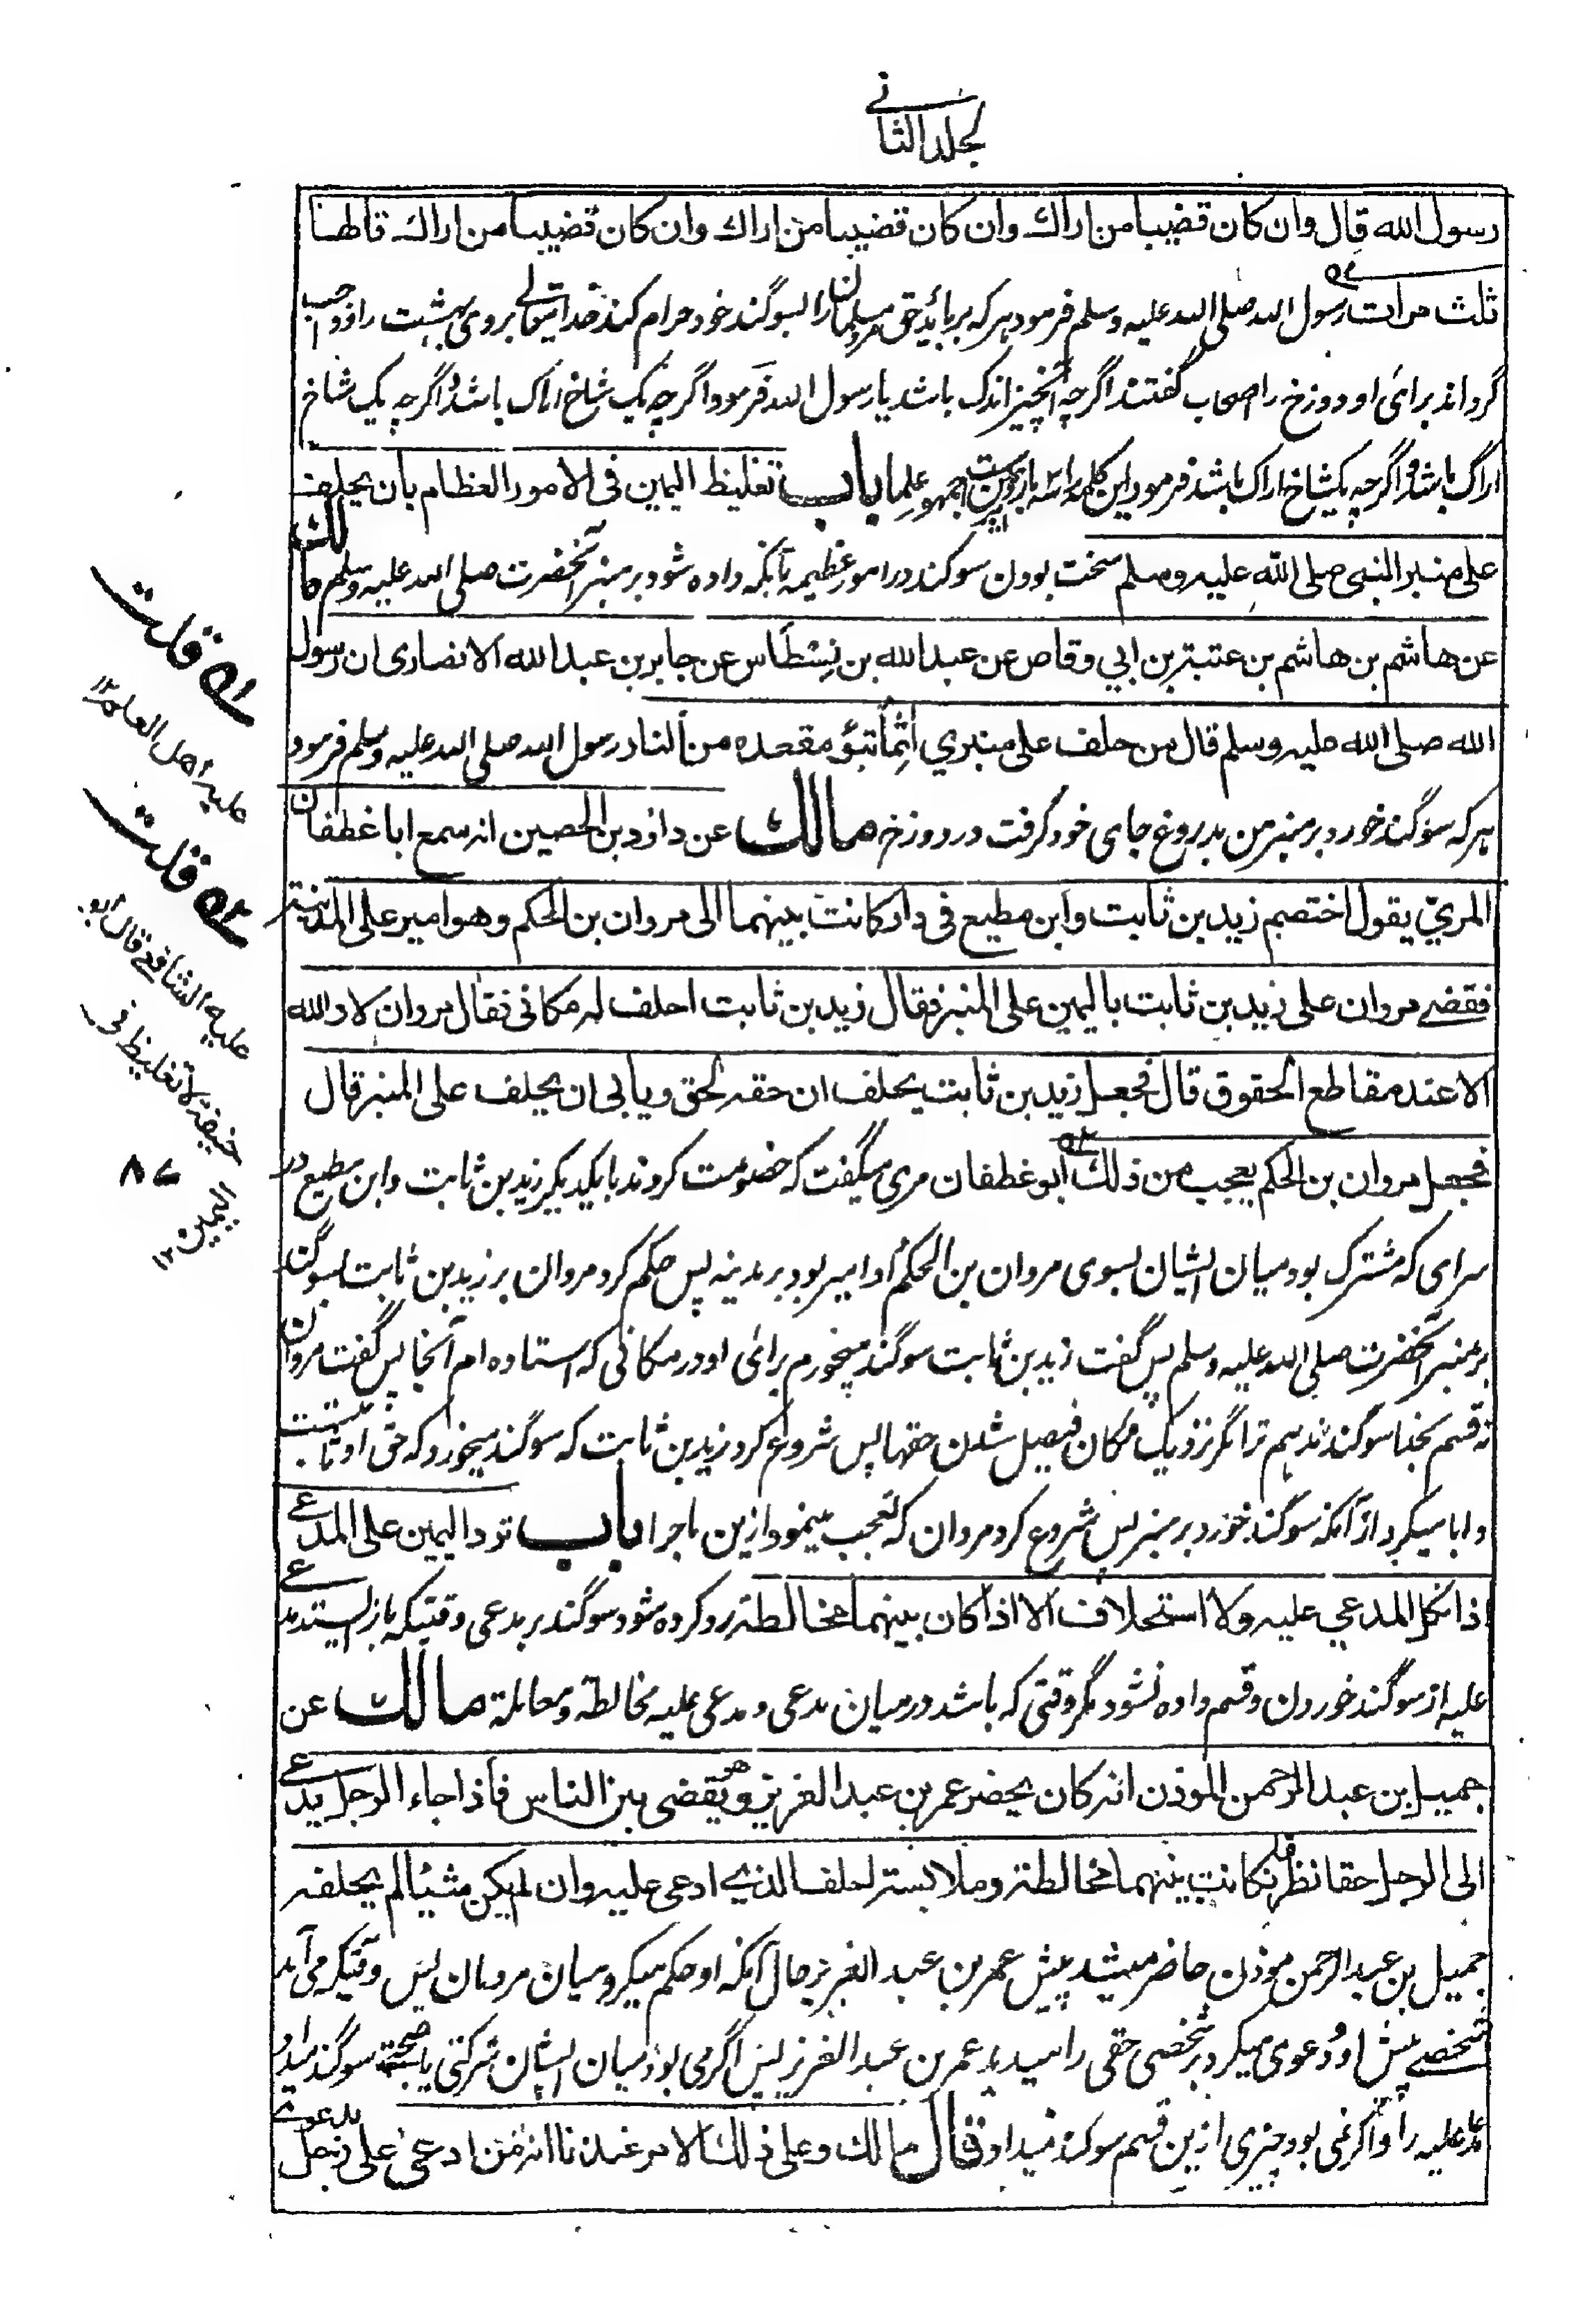 لجلد الثانی
رسول الله قال وان کان قضیبا من اراك وان کان قضیبا من اراك وان کان قضیبا من اراك قالها
ثلث مرات رسول الله صلی الله علیه وسلم فرمود هرکه برباید حق مرد مسلمان را بسوگند خود حرام کند خدایتعالی بروی بهشت را و واجب
گرداند برای او دوزخ را اصحاب گفتند اگرچه آنچیز اندک باشد یا رسول الله فرمود اگرچه یک شاخ اراک باشد و اگرچه یک شاخ
اراک باشد و اگرچه یکشاخ اراک باشد فرمود این کلمه را سه بار جمهور علما باب تغلیظ الیمین فی الامور العظام بان یحلف
علی منبر النبی صلی الله علیه وسلم سخت بودن سوگند در امور عظیمه بآنکه داده شود بر منبر آنحضرت صلی الله علیه وسلم مالك
عن هاشم بن هاشم بن عتبة بن ابی وقاص عن عبد الله بن نِسْطَاس عن جابر بن عبد الله الانصاری ان رسول
الله صلی الله علیه وسلم قال من حلف علی منبری اٰثِمًا تبوّؤ مقعده من النار رسول الله صلی الله علیه وسلم فرمود
هرکه سوگند خورد بر منبر من بدروغ جای خود گرفت در دوزخ مالك عن داؤد بن الحصین انه سمع ابا غطفان
المریّ یقول اختصم زید بن ثابت وابن مطیع فی دار کانت بینهما الی مروان بن الحکم وهو امیر علی المدینة
فقضے مروان علی زید بن ثابت بالیمین علی المنبر فقال زید بن ثابت احلف له مکانی فقال مروان لا والله
الا عند مقاطع الحقوق قال فجعل زید بن ثابت یحلف ان حقه لحق ویابی ان یحلف علی المنبر قال
فجعل مروان بن الحکم یعجب من ذلك ابو غطفان مری میگفت که خصومت کردند با یکدیگر زید بن ثابت وابن مطیع در
سرای که مشترک بود میان ایشان بسوی مروان بن الحکم و او امیر بود بر مدینه پس حکم کرد مروان بر زید بن ثابت بسوگند
بر منبر آنحضرت صلی الله علیه وسلم پس گفت زید بن ثابت سوگند میخورم برای او در مکانی که استاده ام آنجا پس گفت مروان
نه قسم بخدا سوگند ندهم ترا مگر نزدیک مکان فیصل شدن حقها پس شروع کرد زید بن ثابت که سوگند میخورد که حق او ثابت است
و ابا میکرد از آنکه سوگند خورد بر منبر پس شروع کرد مروان که تعجب مینمود ازین ماجرا باب تردا لیمین علی المدعے
اذا نکل المدعی علیه ولا استحلاف الا اذا کان بینهما مخالطة رد کرده شود سوگند بر مدعی وقتیکه باز ایستد مدعے
علیه از سوگند خوردن و قسم داده نشود مگر وقتی که باشد در میان مدعی و مدعی علیه مخالطة و معاملة مالك عن
جمیل بن عبد الرحمن الموذن انه کان یحضر عمر بن عبد العزیز وهو یقضی بین الناس فاذا جاء الرجل یدعے
الی الرجل حقا نظر فان کانت بینهما مخالطة وملابستر احلف الذی ادعی علیه وان لم یکن شیئا لم یحلفه
جمیل بن عبد الرحمن موذن حاضر میشد پیش عمر بن عبد العزیز حال آنکه او حکم میکرد میان مردمان پس وقتیکه می آمد
شخصے پیش او و دعوی میکرد بر شخصی حقی را میدید عمر بن عبد العزیز پس اگر می بود میان ایشان شرکتی یا صحبتے سوگند میداد
مدعا علیه را و اگر نمی بود چیزی ازین قسم سوگند نمیداد قال مالك وعلی ذلك الامر عندنا انه من ادعی علی رجل بدعوے
<u></u>۵۱ قلت
علیه اهل العلم ۱۲
۵۲ قلت
علیه الشافعے قال ابو
حنیفة لا تغلیظ فی
الیمین ۱۲